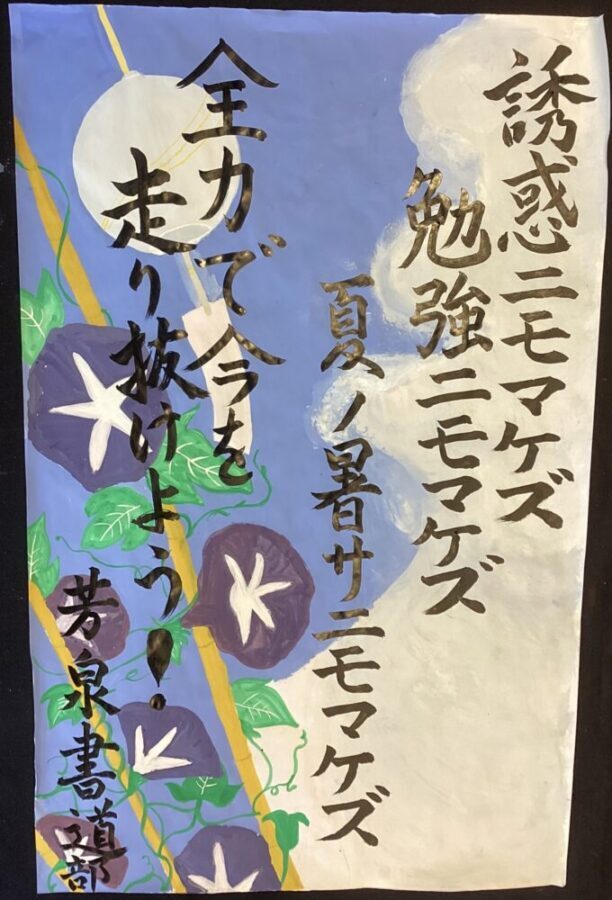 誘惑ニモマケズ
勉強ニモマケズ
夏ノ暑サニモマケズ
全力で今を
走り抜けよう!
芳泉書道部